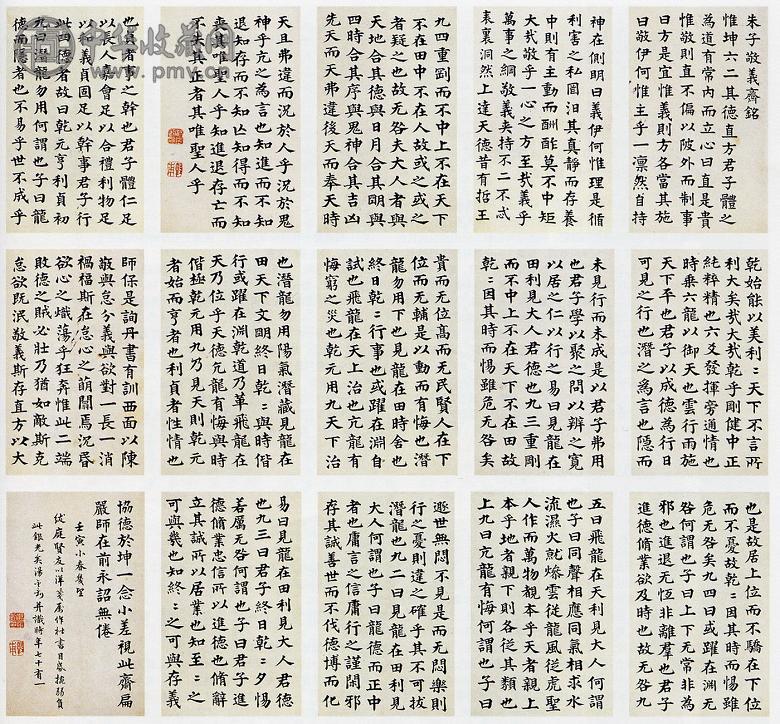 朱子敬義齋銘
惟坤六二其德直方君子體之
為道有常內而立心曰直是貴
惟敬則直不偏以陂外而制事
曰方是宜惟義則方各當其施
曰敬伊何惟主乎一凛然自持
神在側明曰義伊何惟理是循
利害之私罔汨其真靜而存養
中則有主動而酬酢莫不中矩
大哉敬乎一心之方至哉義乎
萬事之綱敬義夾持不二不忒
表裏洞然上達天德昔有哲王
九四重剛而不中上不在天下
不在田中不在人故或之或之
者疑之也故无咎夫大人者與
天地合其德與日月合其明與
四時合其序與鬼神合其吉凶
先天而天弗違後天而奉天時
天且弗違而況於人乎況於鬼
神乎亢之為言也知進而不知
退知存而不知亾知得而不知
喪其唯聖人乎知進退存亡而
不失其正者其唯聖人乎
也貞者事之幹也君子體仁足
以長人嘉會足以合禮利物足
以義貞固足以幹事君子行
此四德者故曰乾元亨利貞初
九潛龍勿用何謂也子曰龍
德而隱者也不易乎世不成乎
乾始能以美利〻天下不言所
利大矣哉大哉乾乎剛健中正
純粹精也六爻發揮旁通情也
時乘六龍以御天也雲行雨施
天下平也君子以成德為行日
可見之行也潛之為言也隱而
未見行而未成是以君子弗用
也君子學以聚之問以辨之寬
以居之仁以行之易曰見龍在
田利見大人君德也九三重剛
而不中上不在天下不在田故
乾〻因其時而惕雖危无咎矣
貴而无位高而无民賢人在下
位而无輔是以動而有悔也潛
龍勿用下也見龍在田時舍也
終日乾〻行事也或躍在淵自
試也飛龍在天上治也亢龍有
悔窮之災也乾元用九天下治
也潛龍勿用陽氣潛藏見龍在
田天下文明終日乾〻與時偕
行或躍在淵乾道乃革飛龍在
天乃位乎天德亢龍有悔與時
偕極乾元用九乃見天則乾元
者始而亨者也利貞者性情也
師保是詢丹書有訓西面以陳
敬與怠分義與欲對一長一消
禍福斯在怠心之萌闒焉沉昏
欲心之熾蕩乎狂奔惟此二端
敗德之賊必壯乃猶如敵斯克
怠欲既泯敬義斯存直方以大
也是故居上位而不驕在下位
而不憂故乾〻因其時而惕雖
危无咎矣九四曰或躍在淵无
咎何謂也子曰上下无常非為
邪也進退无恆非離羣也君子
進德脩業欲及時也故无咎九
五曰飛龍在天利見大人何謂
也子曰同聲相應同氣相求水
流濕火就燥雲從龍風從虎聖
人作而萬物覩本乎天者親上
本乎地者親下則各從其類也
上九曰亢龍有悔何謂也子曰
遯世無悶不見是而无悶樂則
行之憂則違之確乎其不可拔
潛龍也九二曰見龍在田利見
大人何謂也子曰龍德而正中
者也庸言之信庸行之謹閑邪
存其誠善世而不伐德博而化
易曰見龍在田利見大人君德
也九三曰君子終日乾〻夕惕
若厲无咎何謂也子曰君子進
德脩業忠信所以進德也脩辭
立其誠所以居業也知至〻之
可與幾也知終〻之可與存義
協德於坤一念小差視此齋扁
嚴師在前永詔無倦
壬寅小春
此銀光矣 并識時年七十有一
中华收藏网
www.pmv.cn